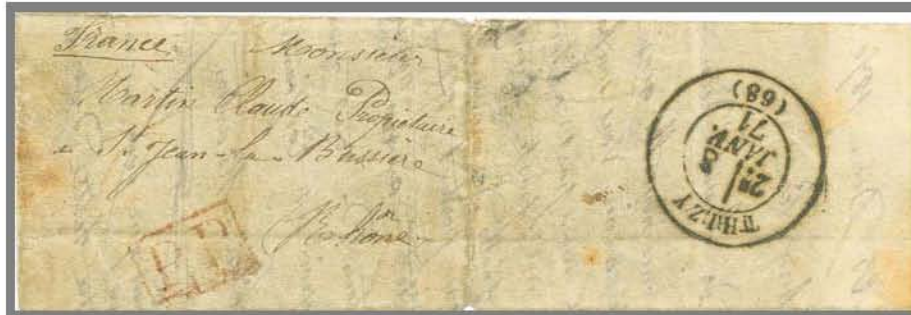 France
Monsieur
Martin Claude Propriétaire
a St Jean-la-Bussière
Rhône
PP
THIZY
2E
8
JANV.
71
(68)